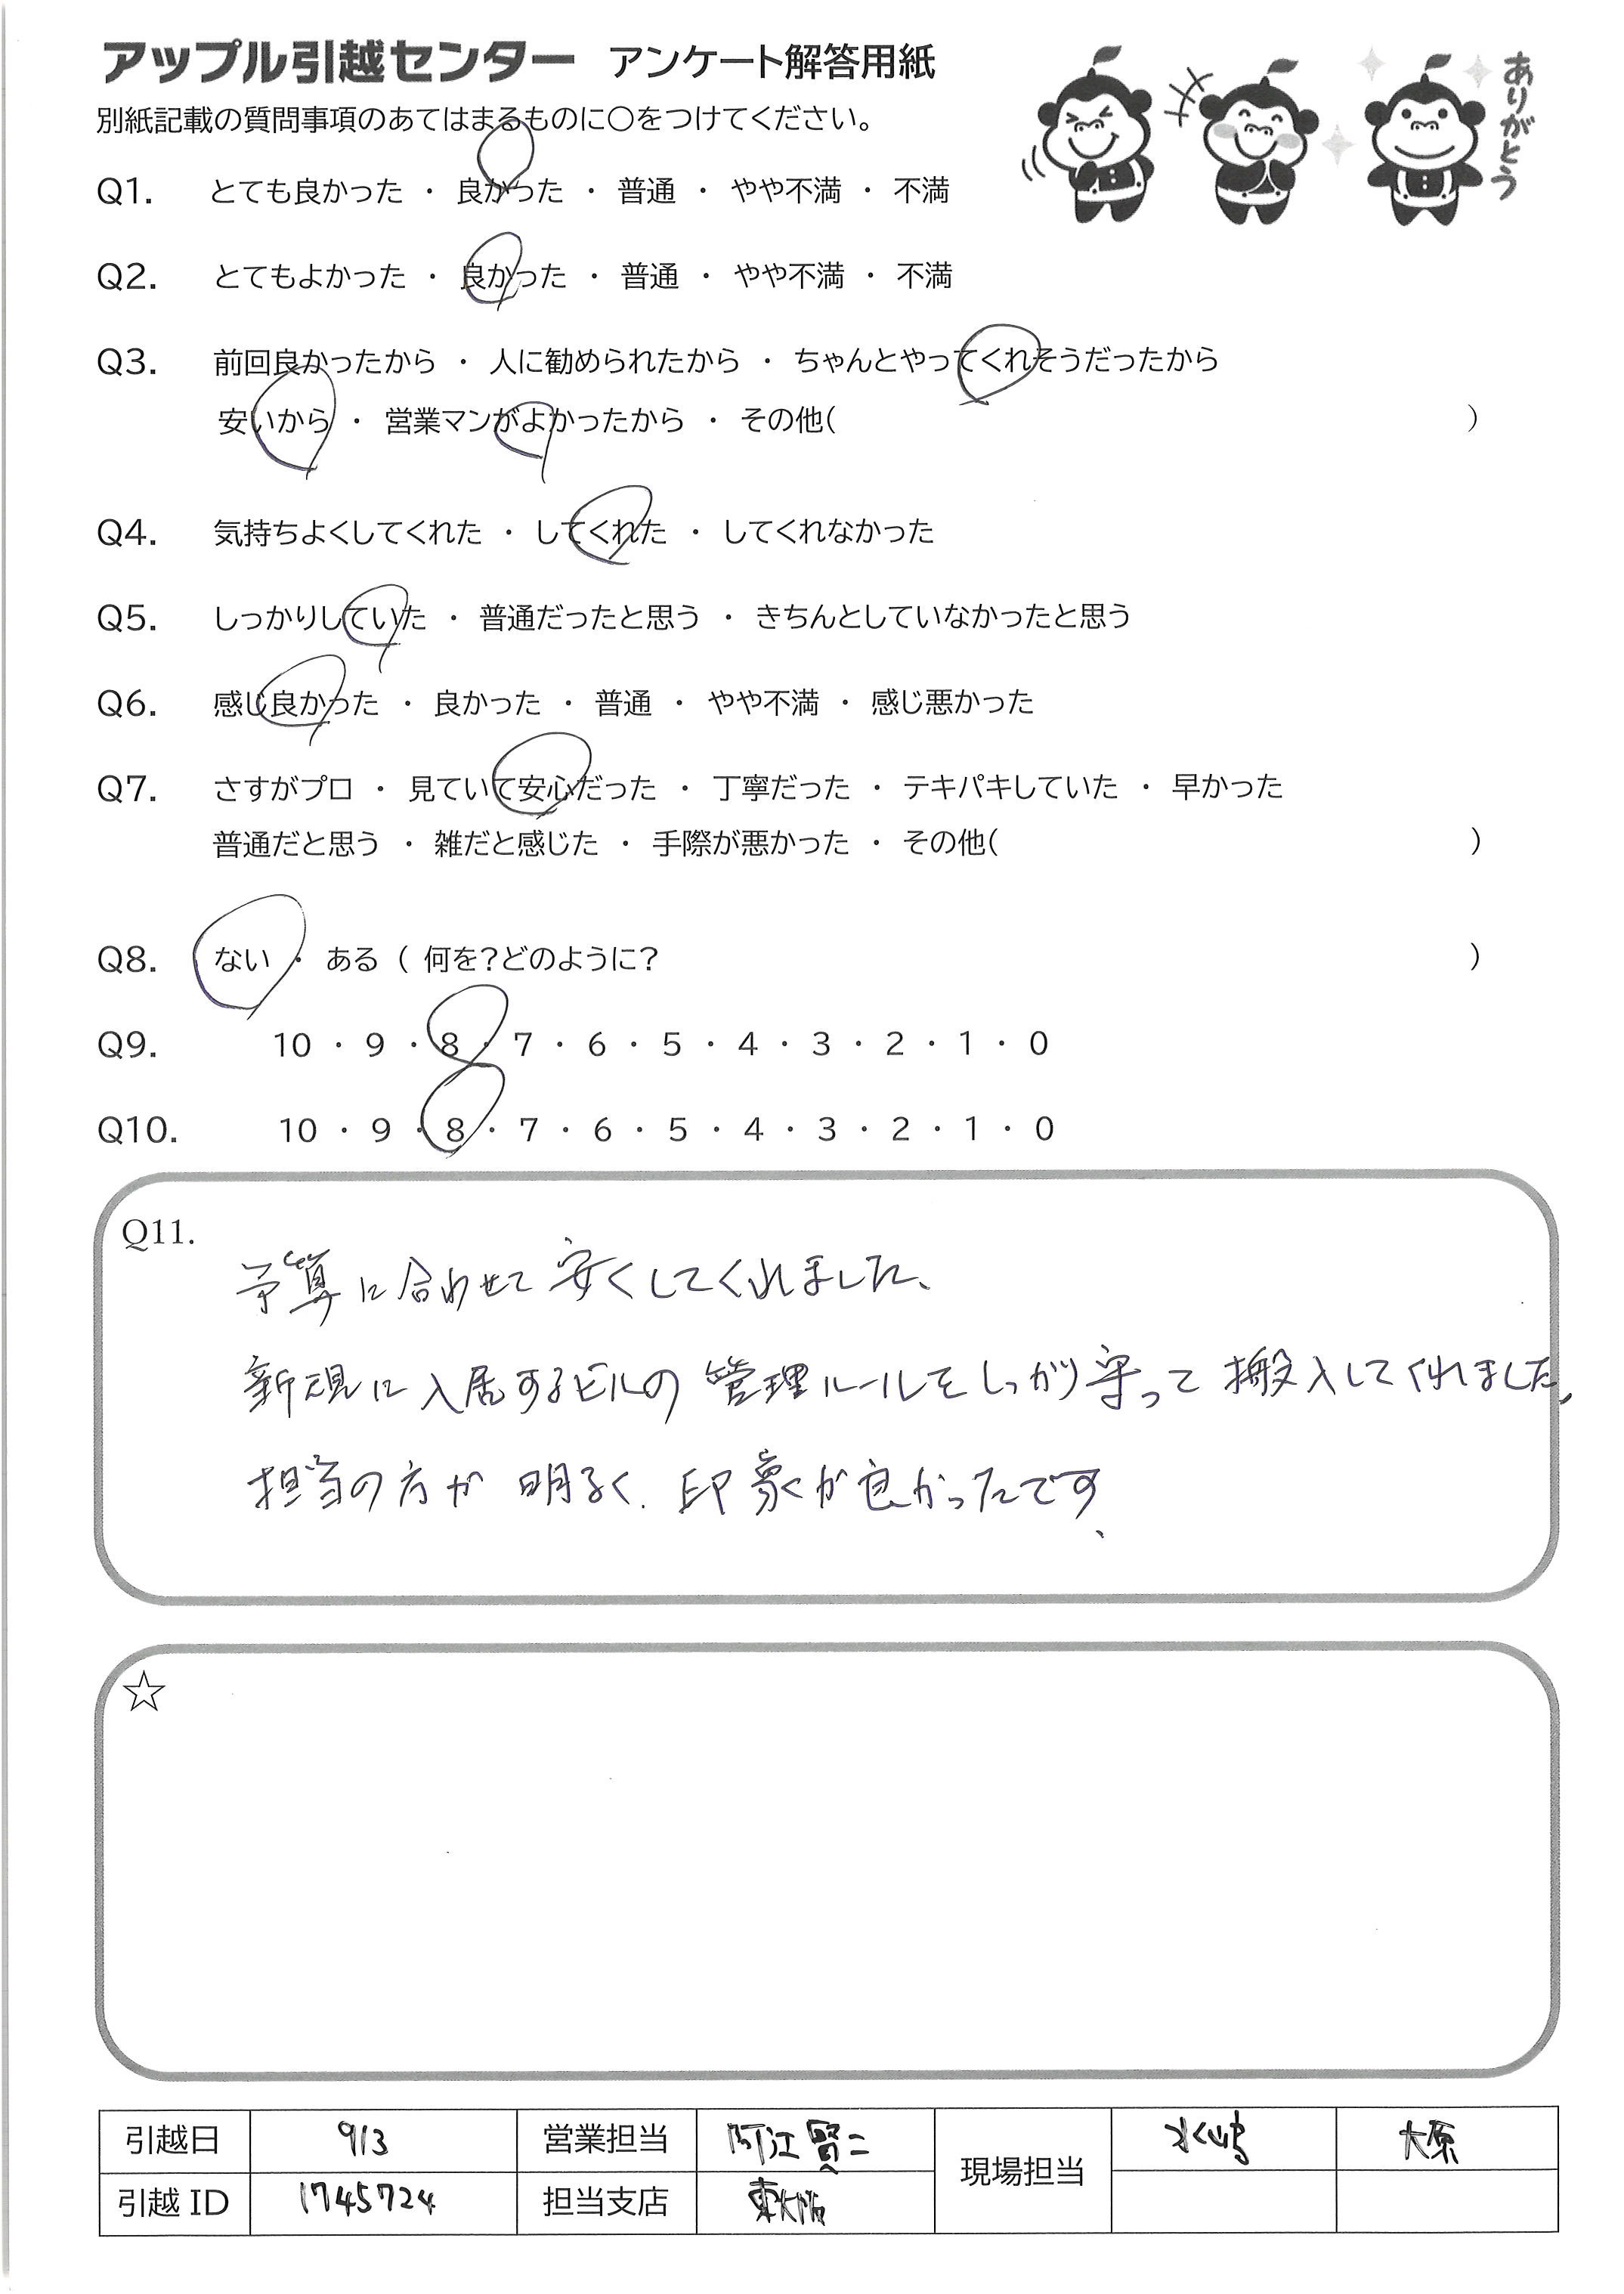 アップル引越センター アンケート解答用紙
ありがとう
別紙記載の質問事項のあてはまるものに○をつけてください。
Q1. とても良かった ・ 良かった ・ 普通 ・ やや不満 ・ 不満
Q2. とてもよかった ・ 良かった ・ 普通 ・ やや不満 ・ 不満
Q3. 前回良かったから ・ 人に勧められたから ・ ちゃんとやってくれそうだったから
安いから ・ 営業マンがよかったから ・ その他( )
Q4. 気持ちよくしてくれた ・ してくれた ・ してくれなかった
Q5. しっかりしていた ・ 普通だったと思う ・ きちんとしていなかったと思う
Q6. 感じ良かった ・ 良かった ・ 普通 ・ やや不満 ・ 感じ悪かった
Q7. さすがプロ ・ 見ていて安心だった ・ 丁寧だった ・ テキパキしていた ・ 早かった
普通だと思う ・ 雑だと感じた ・ 手際が悪かった ・ その他( )
Q8. ない ・ ある ( 何を?どのように? )
Q9. 10 ・ 9 ・ 8 ・ 7 ・ 6 ・ 5 ・ 4 ・ 3 ・ 2 ・ 1 ・ 0
Q10. 10 ・ 9 ・ 8 ・ 7 ・ 6 ・ 5 ・ 4 ・ 3 ・ 2 ・ 1 ・ 0
Q11.
予算に合わせて安くしてくれました、
新規に入居するビルの管理ルールをしっかり守って搬入してくれました、
担当の方が明るく、印象が良かったです、
☆
引越日 9/3 営業担当 阿江 賢二 現場担当 水嶋 大原
引越 ID 1745724 担当支店 東大阪